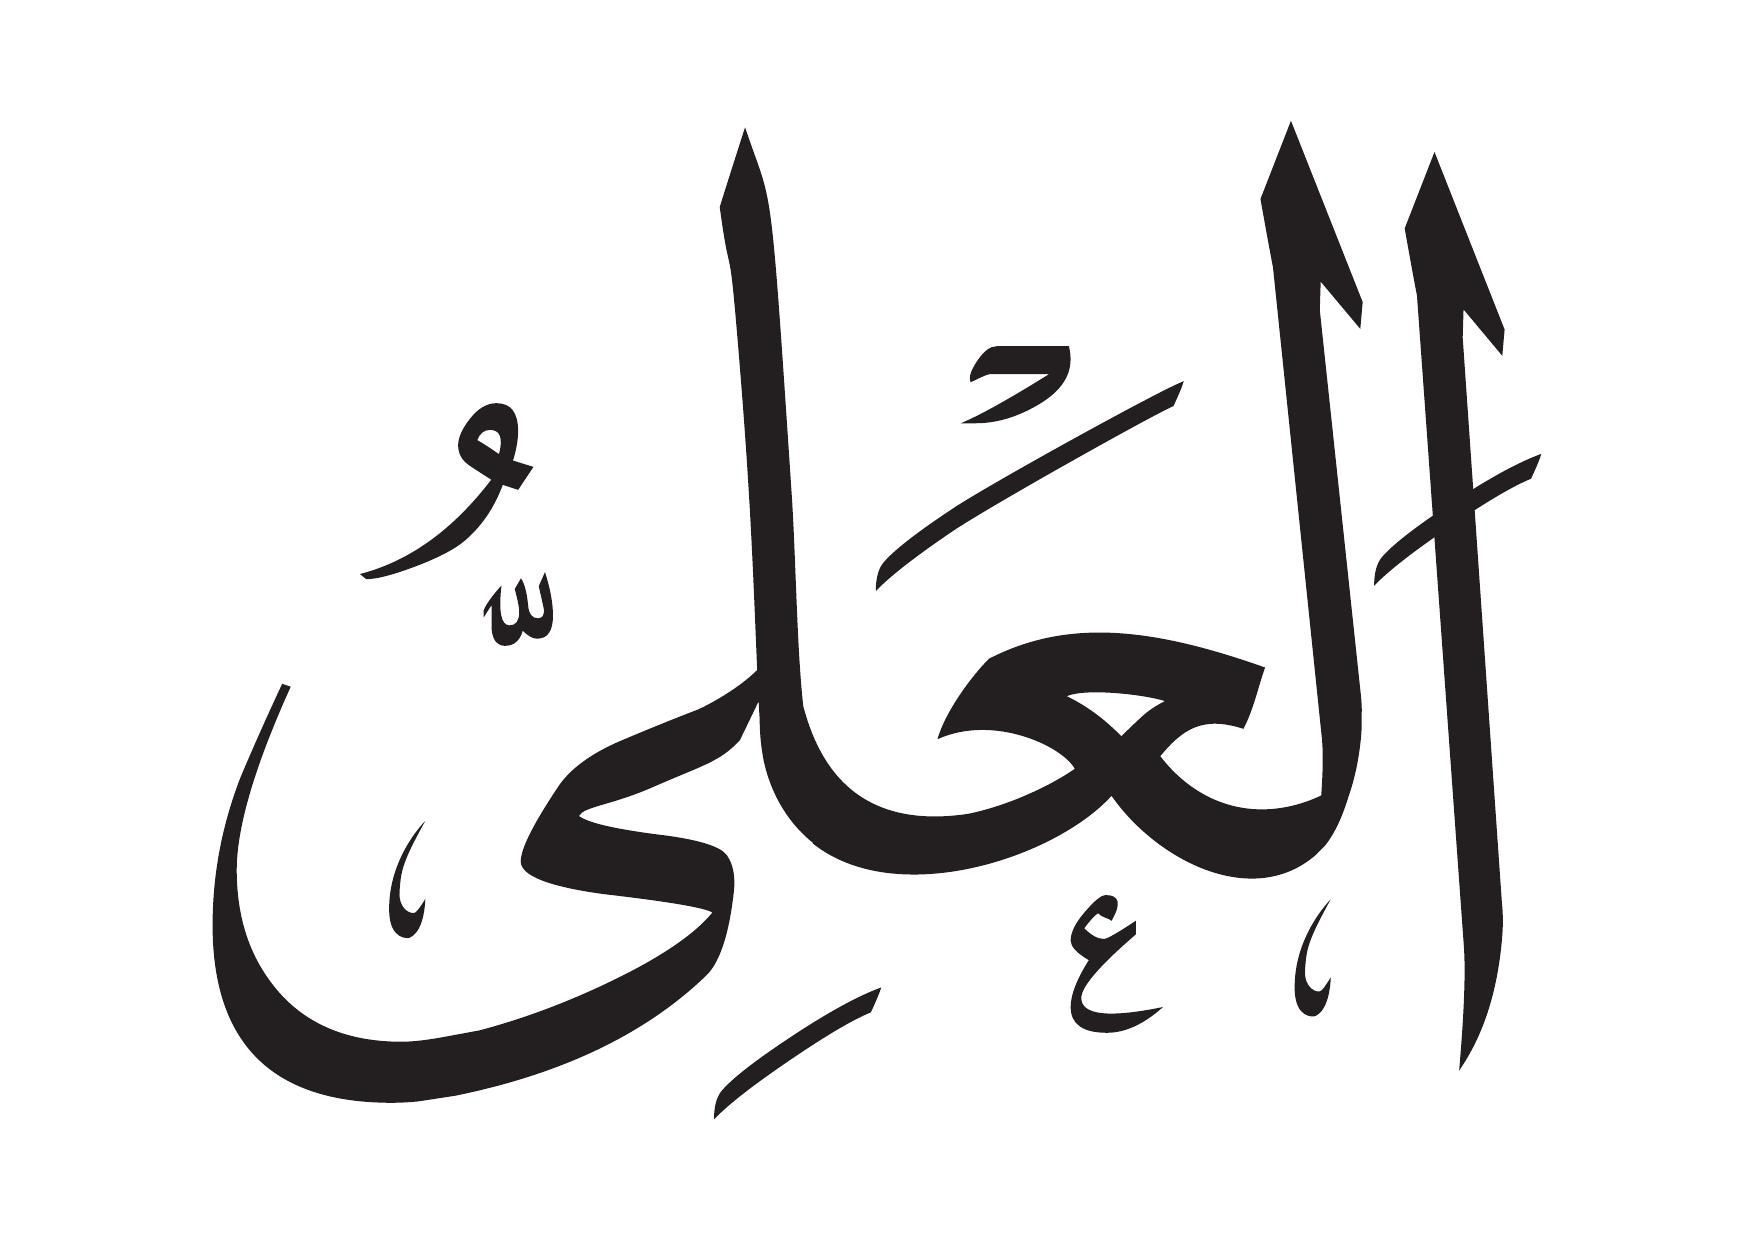 الْعَلِىُّ